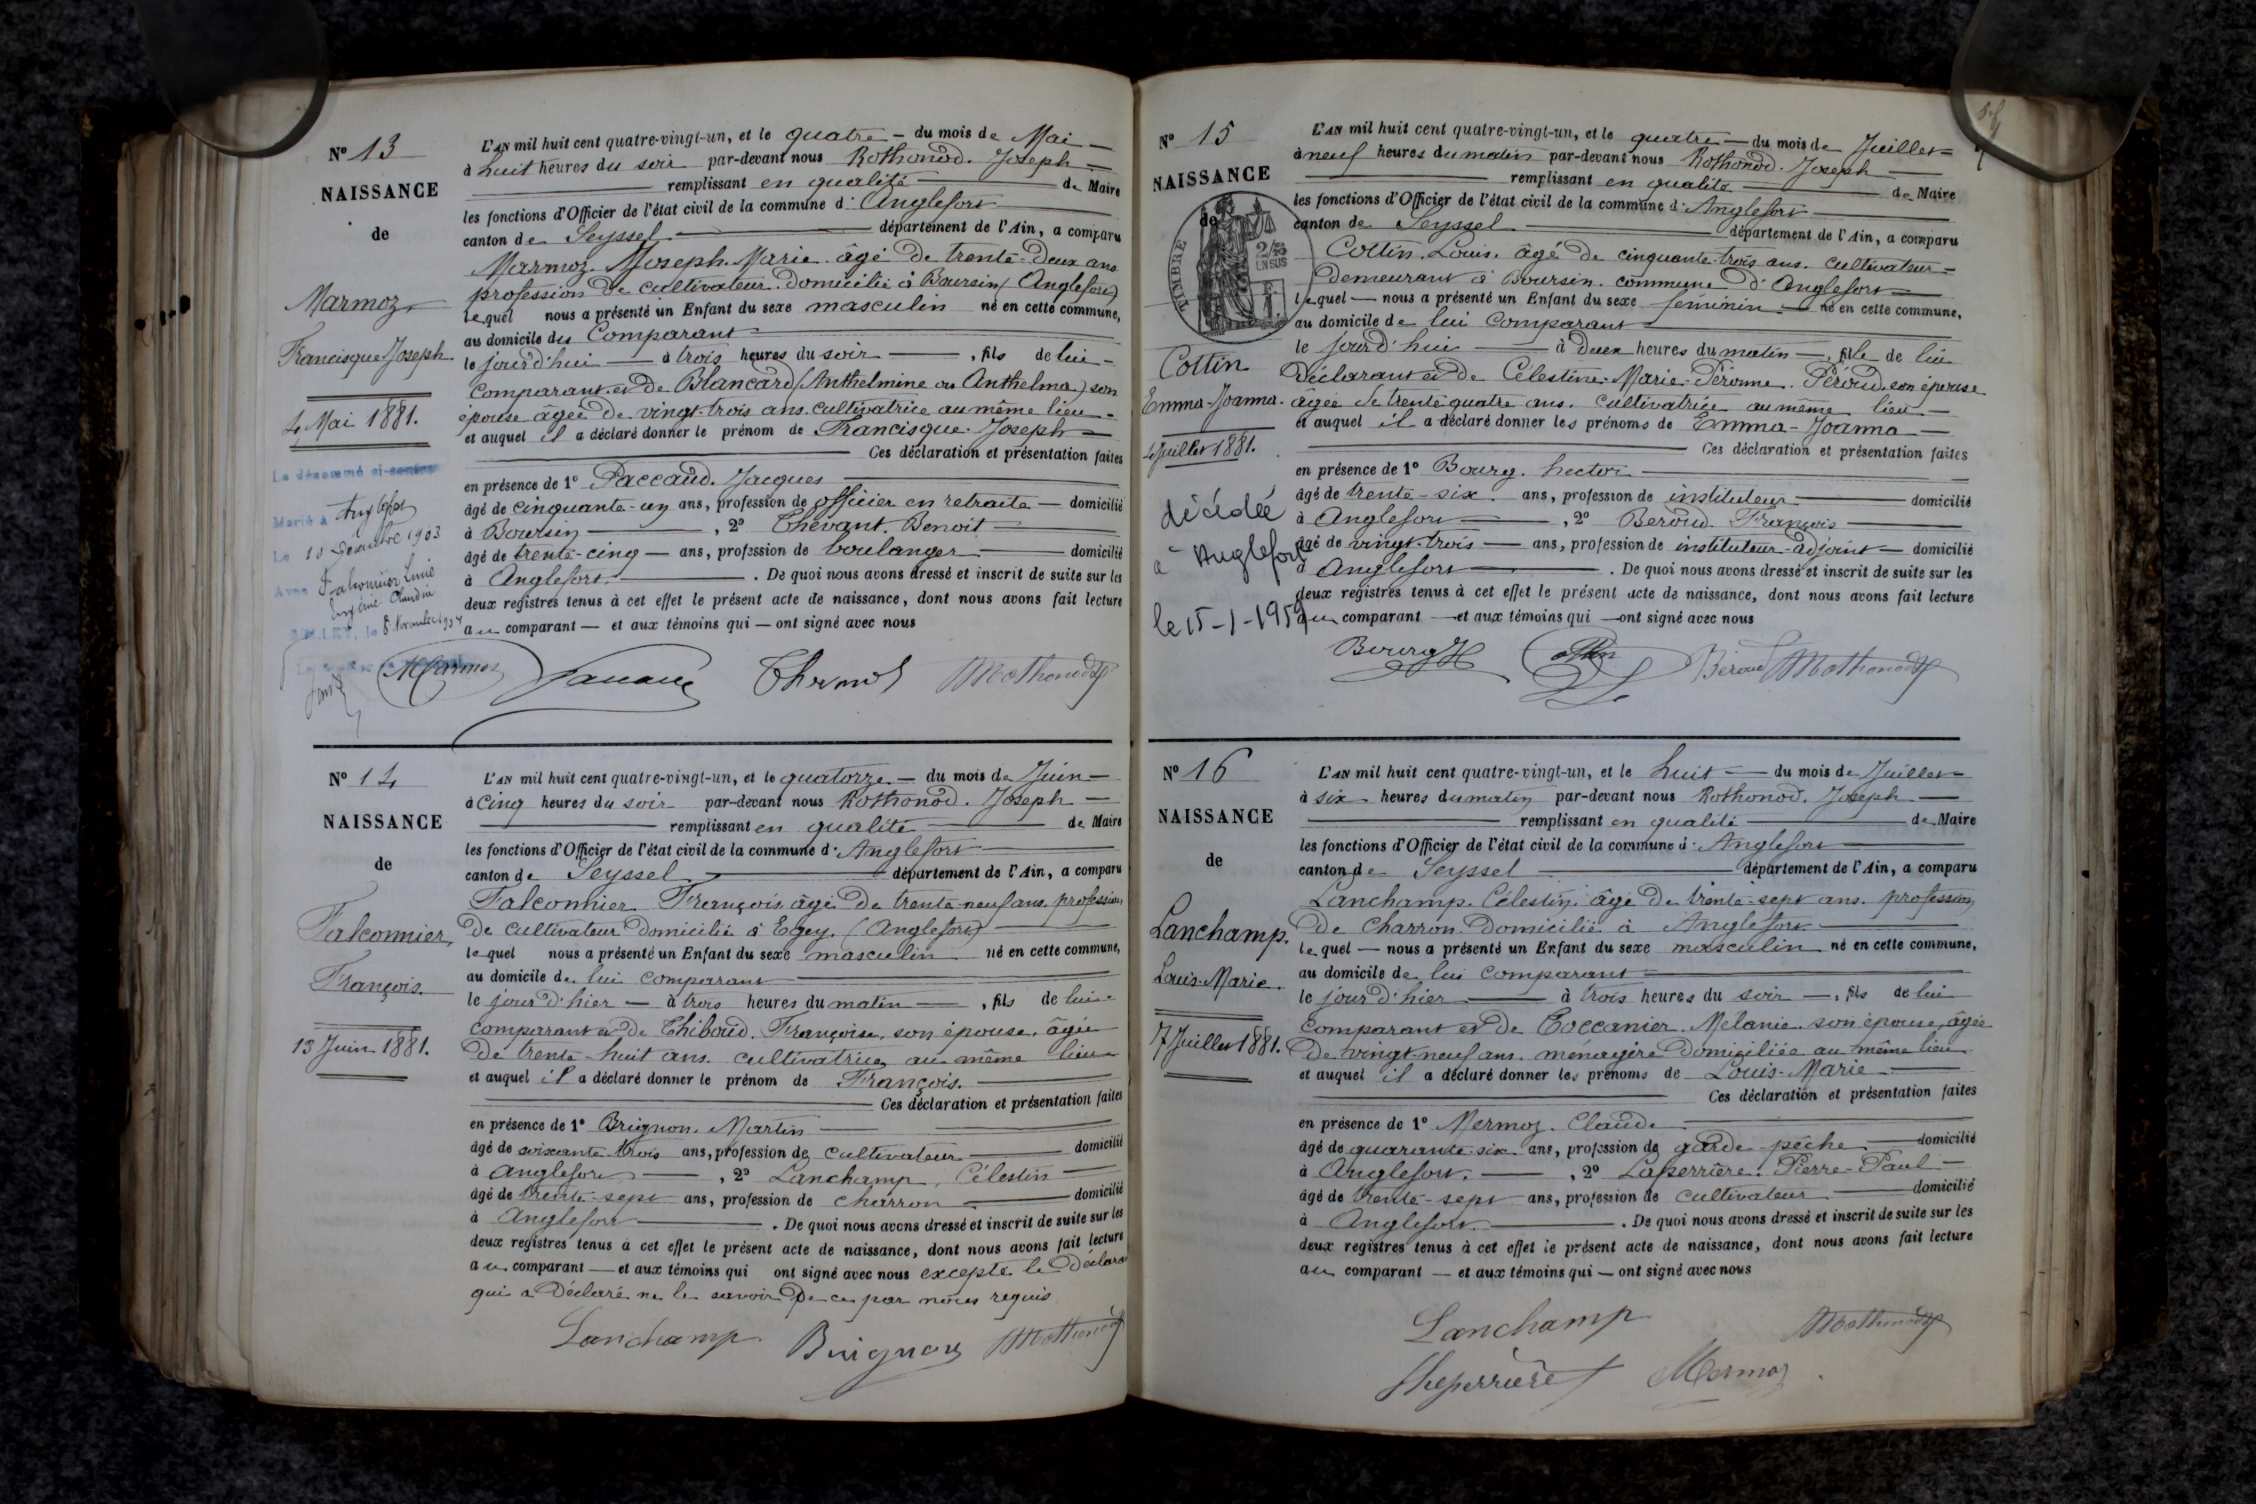 N° 13
NAISSANCE
de
Marmoz
Francisque Joseph
4 Mai 1881.
Le dénommé ci-contre
Marié à Anglefort
Le 10 Décembre 1903
Avec Falconnier Lucie
Eugénie Claudia
le 8 Novembre 1934
L'AN mil huit cent quatre-vingt-un, et le quatre du mois de Mai
à huit heures du soir par-devant nous Rothonod. Joseph
remplissant en qualité de Maire
les fonctions d'Officier de l'état civil de la commune d' Anglefort
canton de Seyssel département de l'Ain, a comparu
Marmoz. Joseph. Marie. âgé de trente-deux ans
profession de cultivateur. domicilié à Boursin (Anglefort)
lequel nous a présenté un Enfant du sexe masculin né en cette commune,
au domicile du Comparant
le jourd'hui à trois heures du soir, fils de lui
comparant et de Blancard (Anthelmine ou Anthelma) son
épouse âgée de vingt-trois ans. cultivatrice au même lieu
et auquel il a déclaré donner le prénom de Francisque. Joseph
Ces déclaration et présentation faites
en présence de 1° Paccaud. Jacques
âgé de cinquante-un ans, profession de officier en retraite domicilié
à Boursin, 2° Thévant. Benoit
âgé de trente-cinq ans, profession de boulanger domicilié
à Anglefort. De quoi nous avons dressé et inscrit de suite sur les
deux registres tenus à cet effet le présent acte de naissance, dont nous avons fait lecture
au comparant et aux témoins qui ont signé avec nous
Marmoz
N° 14
NAISSANCE
de
Falconnier
François.
13 Juin 1881.
L'AN mil huit cent quatre-vingt-un, et le quatorze du mois de Juin
à cinq heures du soir par-devant nous Rothonod. Joseph
remplissant en qualité de Maire
les fonctions d'Officier de l'état civil de la commune d' Anglefort
canton de Seyssel département de l'Ain, a comparu
Falconnier François âgé de trente-neuf ans. profession
de cultivateur domicilié à Eyey. (Anglefort)
lequel nous a présenté un Enfant du sexe masculin né en cette commune,
au domicile de lui comparant
le jour d'hier à trois heures du matin, fils de lui
comparant et de Thiboud. Françoise. son épouse. âgée
de trente-huit ans. cultivatrice au même lieu
et auquel il a déclaré donner le prénom de François.
Ces déclaration et présentation faites
en présence de 1° Brignon. Martin
âgé de soixante-trois ans, profession de cultivateur domicilié
à Anglefort, 2° Lanchamp, Célestin
âgé de trente-sept ans, profession de charron domicilié
à Anglefort. De quoi nous avons dressé et inscrit de suite sur les
deux registres tenus à cet effet le présent acte de naissance, dont nous avons fait lecture
au comparant et aux témoins qui ont signé avec nous excepté le déclarant
qui a déclaré ne le savoir de ce par nous requis
Lanchamp Brignon JRothonod
N° 15
NAISSANCE
de
TIMBRE
Cottin
Emma-Joanna.
4 Juillet 1881.
décédée
à Anglefort
le 15-1-1959
L'AN mil huit cent quatre-vingt-un, et le quatre du mois de Juillet
à neuf heures du matin par-devant nous Rothonod. Joseph
remplissant en qualité de Maire
les fonctions d'Officier de l'état civil de la commune d' Anglefort
canton de Seyssel département de l'Ain, a comparu
Cottin. Louis. âgé de cinquante-trois ans. cultivateur
demeurant à Boursin. commune d'Anglefort
lequel nous a présenté un Enfant du sexe féminin né en cette commune,
au domicile de lui comparant
le jourd'hui à deux heures du matin, fille de lui
déclarant et de Célestine-Marie-Péronne. Péroud. son épouse
âgée de trente-quatre ans. cultivatrice au même lieu
et auquel il a déclaré donner les prénoms de Emma-Joanna
Ces déclaration et présentation faites
en présence de 1° Bourg. hector
âgé de trente-six ans, profession de instituteur domicilié
à Anglefort, 2° Beroud. François
âgé de vingt-trois ans, profession de instituteur-adjoint domicilié
à Anglefort. De quoi nous avons dressé et inscrit de suite sur les
deux registres tenus à cet effet le présent acte de naissance, dont nous avons fait lecture
au comparant et aux témoins qui ont signé avec nous
Bourg H Béroud JRothonod
N° 16
NAISSANCE
de
Lanchamp.
Louis-Marie
7 Juillet 1881.
L'AN mil huit cent quatre-vingt-un, et le huit du mois de Juillet
à six heures du matin par-devant nous Rothonod. Joseph
remplissant en qualité de Maire
les fonctions d'Officier de l'état civil de la commune d' Anglefort
canton de Seyssel département de l'Ain, a comparu
Lanchamp. Célestin. âgé de trente-sept ans. profession
de charron domicilié à Anglefort
lequel nous a présenté un Enfant du sexe masculin né en cette commune,
au domicile de lui comparant
le jour d'hier à trois heures du soir, fils de lui
comparant et de Coccanier. Mélanie. son épouse, âgée
de vingt-neuf ans. ménagère domiciliée au même lieu
et auquel il a déclaré donner les prénoms de Louis-Marie
Ces déclaration et présentation faites
en présence de 1° Mermoz. Claude
âgé de quarante-six ans, profession de garde-pêche domicilié
à Anglefort, 2° Laperrière. Pierre-Paul
âgé de trente-sept ans, profession de cultivateur domicilié
à Anglefort. De quoi nous avons dressé et inscrit de suite sur les
deux registres tenus à cet effet le présent acte de naissance, dont nous avons fait lecture
au comparant et aux témoins qui ont signé avec nous
Lanchamp JRothonod
Mermoz